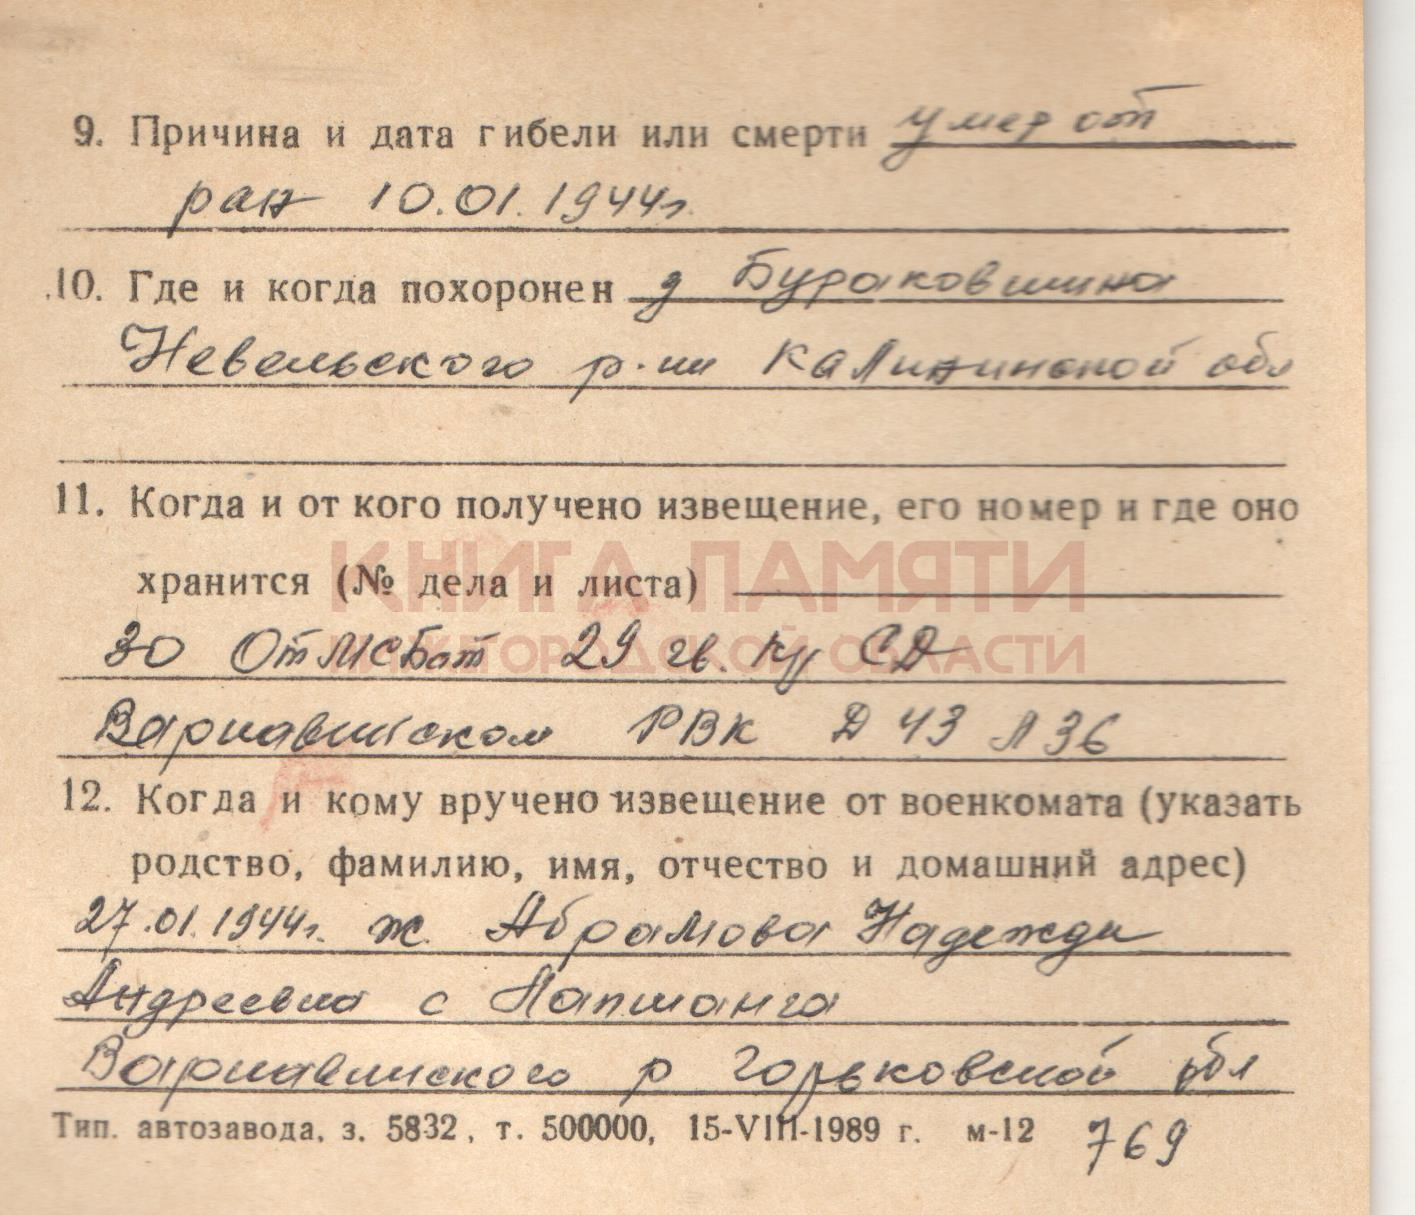 9. Причина и дата гибели или смерти умер от
ран 10.01.1944г.
10. Где и когда похоронен д Бураковшина
Невельского р-ни Калининской обл
11. Когда и от кого получено извещение, его номер и где оно
КНИГА ПАМЯТИ
хранится (№ дела и листа)
НИЖЕГОРОДСКОЙ ОБЛАСТИ
30 ОтМСБат 29 гв. СД
Варнавинском РВК Д 43 Л 36
12. Когда и кому вручено извещение от военкомата (указать
родство, фамилию, имя, отчество и домашний адрес)
27.01.1944г. ж. Абрамова Надежди
Андреевна с Лапшанга
Варнавинского р Горьковской обл
Тип. автозавода, з. 5832, т. 500000, 15-VIII-1989 г. м-12 769